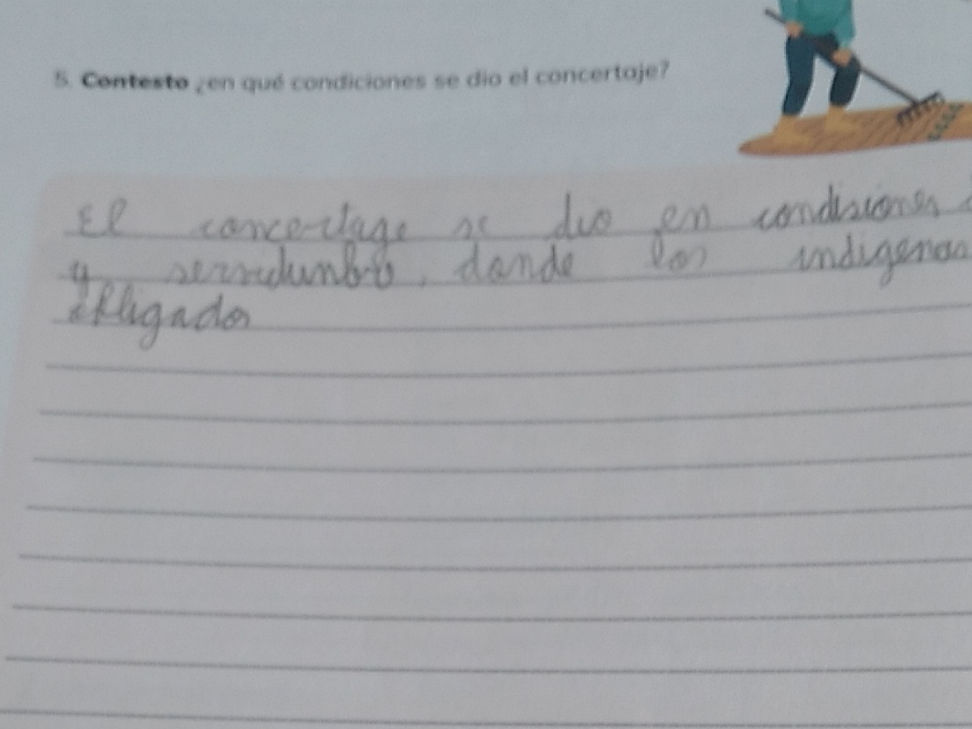 5. Contesto ¿en qué condiciones se dio el concertaje?
El concertage se dio en condisiones
y serridumbre, donde los indigenas
obligados